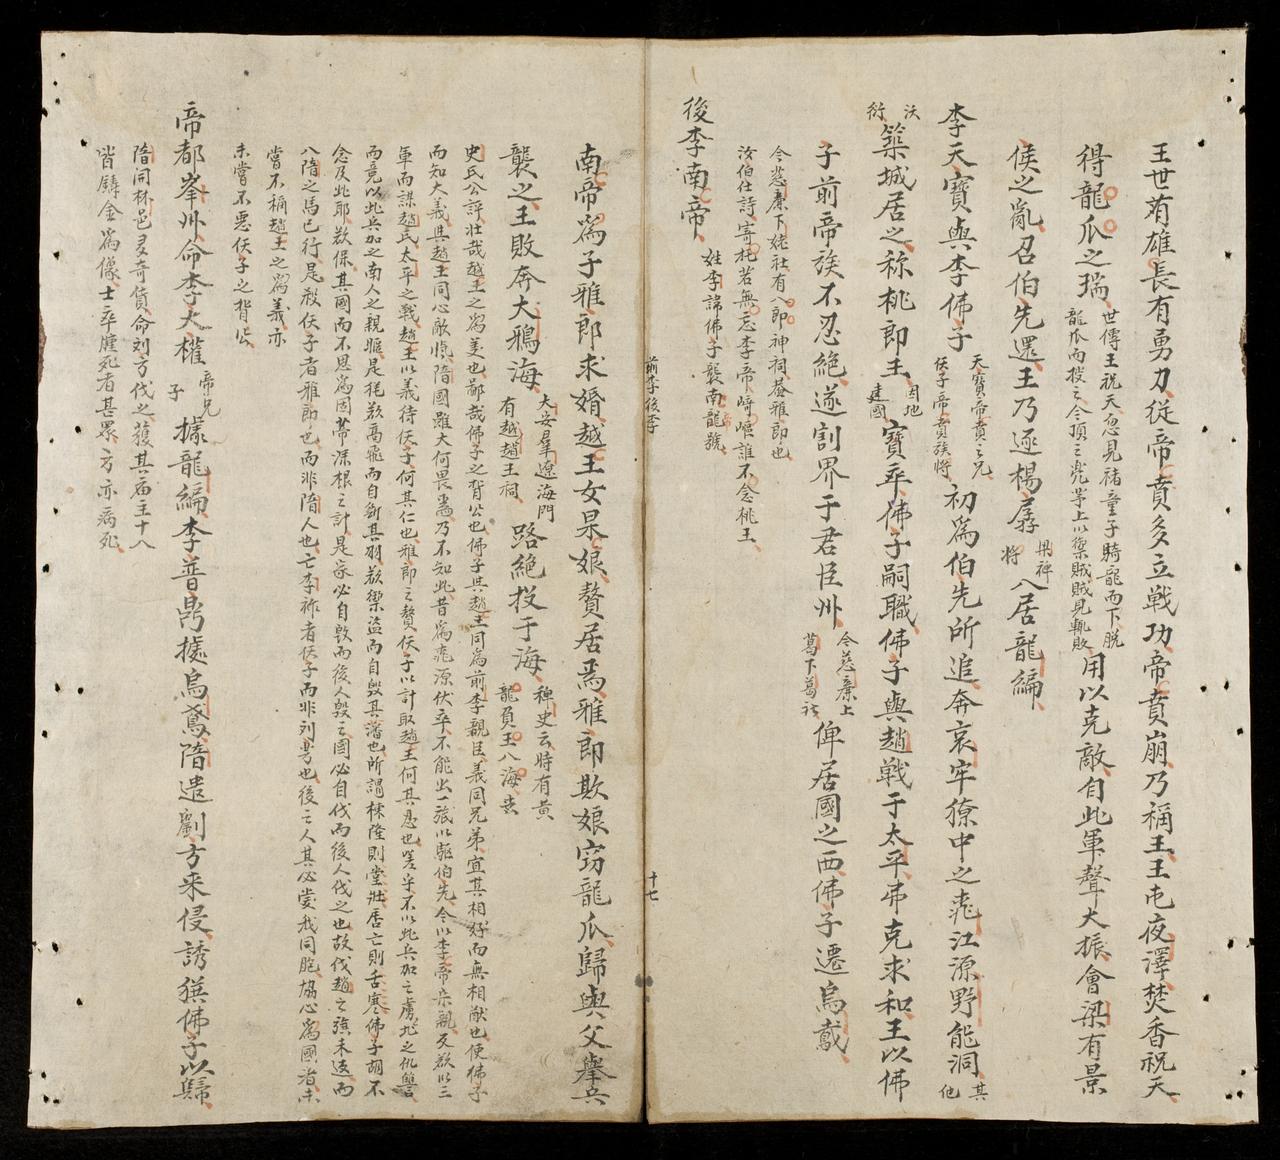 王世著雄長有勇力従帝賁多立戦功帝賁崩乃稱王王屯夜澤焚香祝天
得龍爪之瑞
世傳王祝天忽見褚童子騎龍而下脱
龍爪而授之令頂之兜牟上以禦賊賊見輒敗
用以克敵自此軍聲大振會梁有景
侯之亂召伯先還王乃逐楊孱
梁裨
将
入居龍編
李天寶與李佛子
天寶帝賁之兄
佛子帝賁族将
初為伯先所追奔哀牢獠中之桃江源野能洞
其
他
沃
衍
築城居之称桃郎王
因地
建國
寶卒佛子嗣職佛子與趙戦于太平弗克求和王以佛
子前帝族不忍絶遂割界于君臣州
今慈廉上
葛下葛社
俾居國之西佛子遷烏鳶
今慈廉下姥社有八郎神祠葢雅郎也
汝伯仕詩寄托若無忘李帝﨑嶇誰不念桃王
後李南帝
姓李諱佛子襲南帝號
前李後李
十七
南帝為子雅郎求婚越王女杲娘贅居焉雅郎欺娘窃龍爪歸與父舉兵
襲之王敗奔大鴉海
大安羣遼海門
有越趙王祠
路絶投于海
稗史云時有黄
龍負王入海去
史氏公評壮哉越王之為美也鄙哉佛子之背公也佛子與趙王同為前李親臣義同兄弟宜其相好而無相猷也使佛子
而知大義與趙王同心敵愾隋國雖大何畏焉乃不知此昔為桃源伏卒不能出一旅以驅伯先今以李帝宗親反欲以三
軍而謀趙氏太平之戰趙王以義待佛子何其仁也雅郎之贅佛子以計取趙王何其慝也嗟乎不以此兵加之虜北之仇讐
而竟以此兵加之南人之親姻是猶欲髙飛而自斷其羽欲禦盗而自毁其藩也所謂棟隆則堂壮唇亡則舌寒佛子胡不
念及此耶欲保其國而不思為固蒂深根之計是家必自毁而後人毁之國必自伐而後人伐之也故伐趙之強未返而
入隋之馬已行是殺佛子者雅郎也而非隋人也亡李祚者佛子而非刘芳也後之人其必愛我同胞協心為國者未
嘗不稱趙王之為義亦
未嘗不惡佛子之背公
帝都峯州命李大權
帝兄
子
據龍編李普鼎據烏鳶隋遣劉方来侵誘猉佛子以歸
隋聞林邑多奇貨命刘方伐之獲其庙主十八
皆鑄金為像士卒腫死者甚衆方亦病死